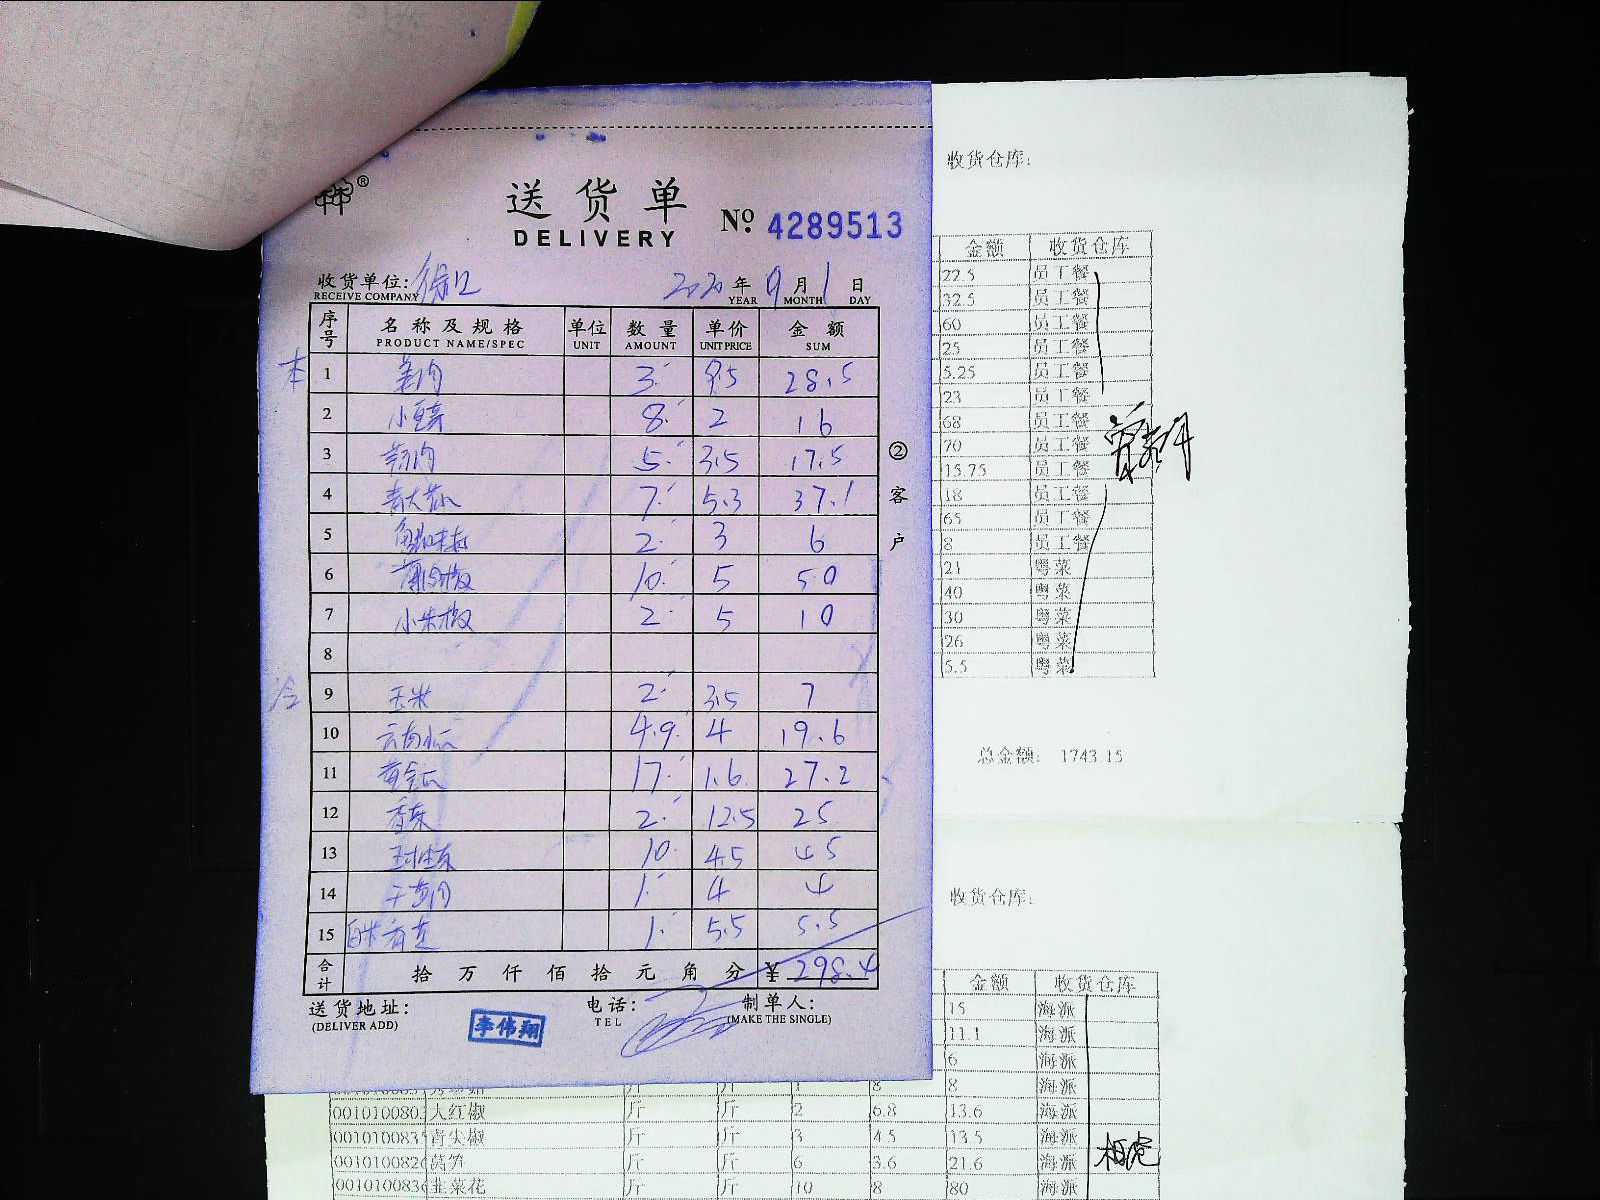 送货单
DELIVERY
№ 4289513
收货单位: 徐汇 2020年 9月 1日
RECEIVE COMPANY YEAR MONTH DAY
序号 名称及规格 单位 数量 单价 金额
PRODUCT NAME/SPEC UNIT AMOUNT UNIT PRICE SUM
本
1 姜肉 3 9.5 28.5
2 小 8 2 16
3 5 3.5 17.5
4 7 5.3 37.1
5 2 3 6
6 10 5 50
7 小米椒 2 5 10
8
冷
9 玉米 2 3.5 7
10 云南小瓜 4.9 4 19.6
11 黄金瓜 17 1.6 27.2
12 香菜 2 12.5 25
13 10 4.5 45
14 1 4 4
15 1 5.5 5.5
合计 拾万仟佰拾元角分 ¥ 298.4
送货地址: 电话: 制单人:
(DELIVER ADD) TEL (MAKE THE SINGLE)
李伟翔
②客户
收货仓库:
金额 收货仓库
22.5 员工餐
32.5 员工餐
60 员工餐
25 员工餐
5.25 员工餐
23 员工餐
68 员工餐
70 员工餐
15.75 员工餐
18 员工餐
65 员工餐
8 员工餐
21 粤菜
40 粤菜
30 粤菜
26 粤菜
5.5 粤菜
总金额: 1743.15
收货仓库:
金额 收货仓库
15 海派
11.1 海派
6 海派
斤 斤 1 8 8 海派
001010080 大红椒 斤 斤 2 6.8 13.6 海派
001010083 青尖椒 斤 斤 3 4.5 13.5 海派
001010082 莴笋 斤 斤 6 3.6 21.6 海派
001010083 韭菜花 斤 斤 10 8 80 海派